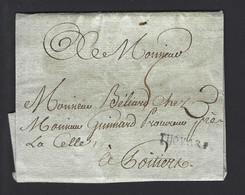 A Monsieur
Monsieur Béliard Chez
Monsieur Guimard Procureur près
La Celle,
à Poitiers